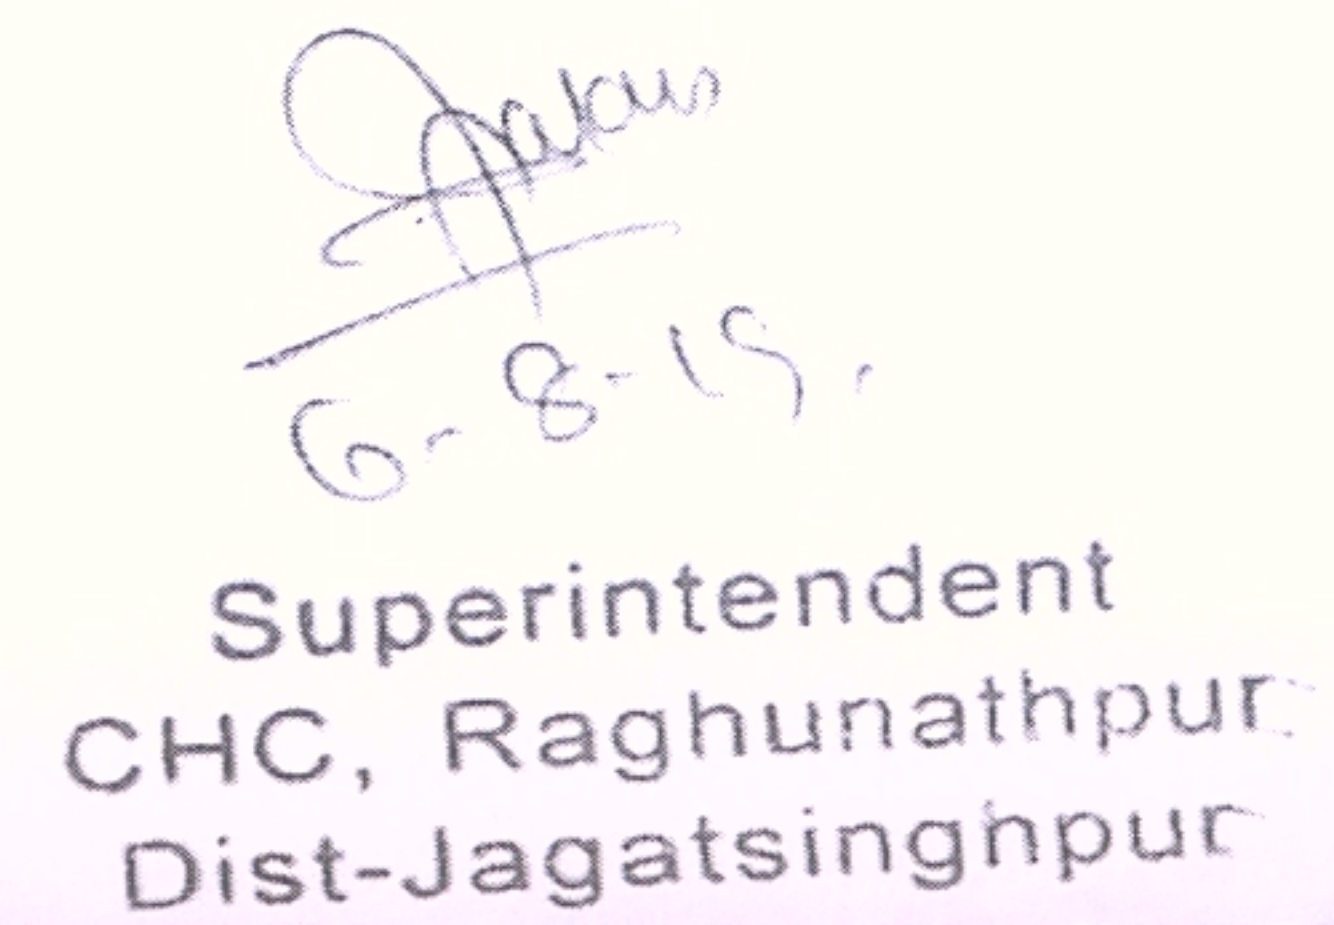 6-8-19.
Superintendent
CHC, Raghunathpur
Dist-Jagatsinghpur